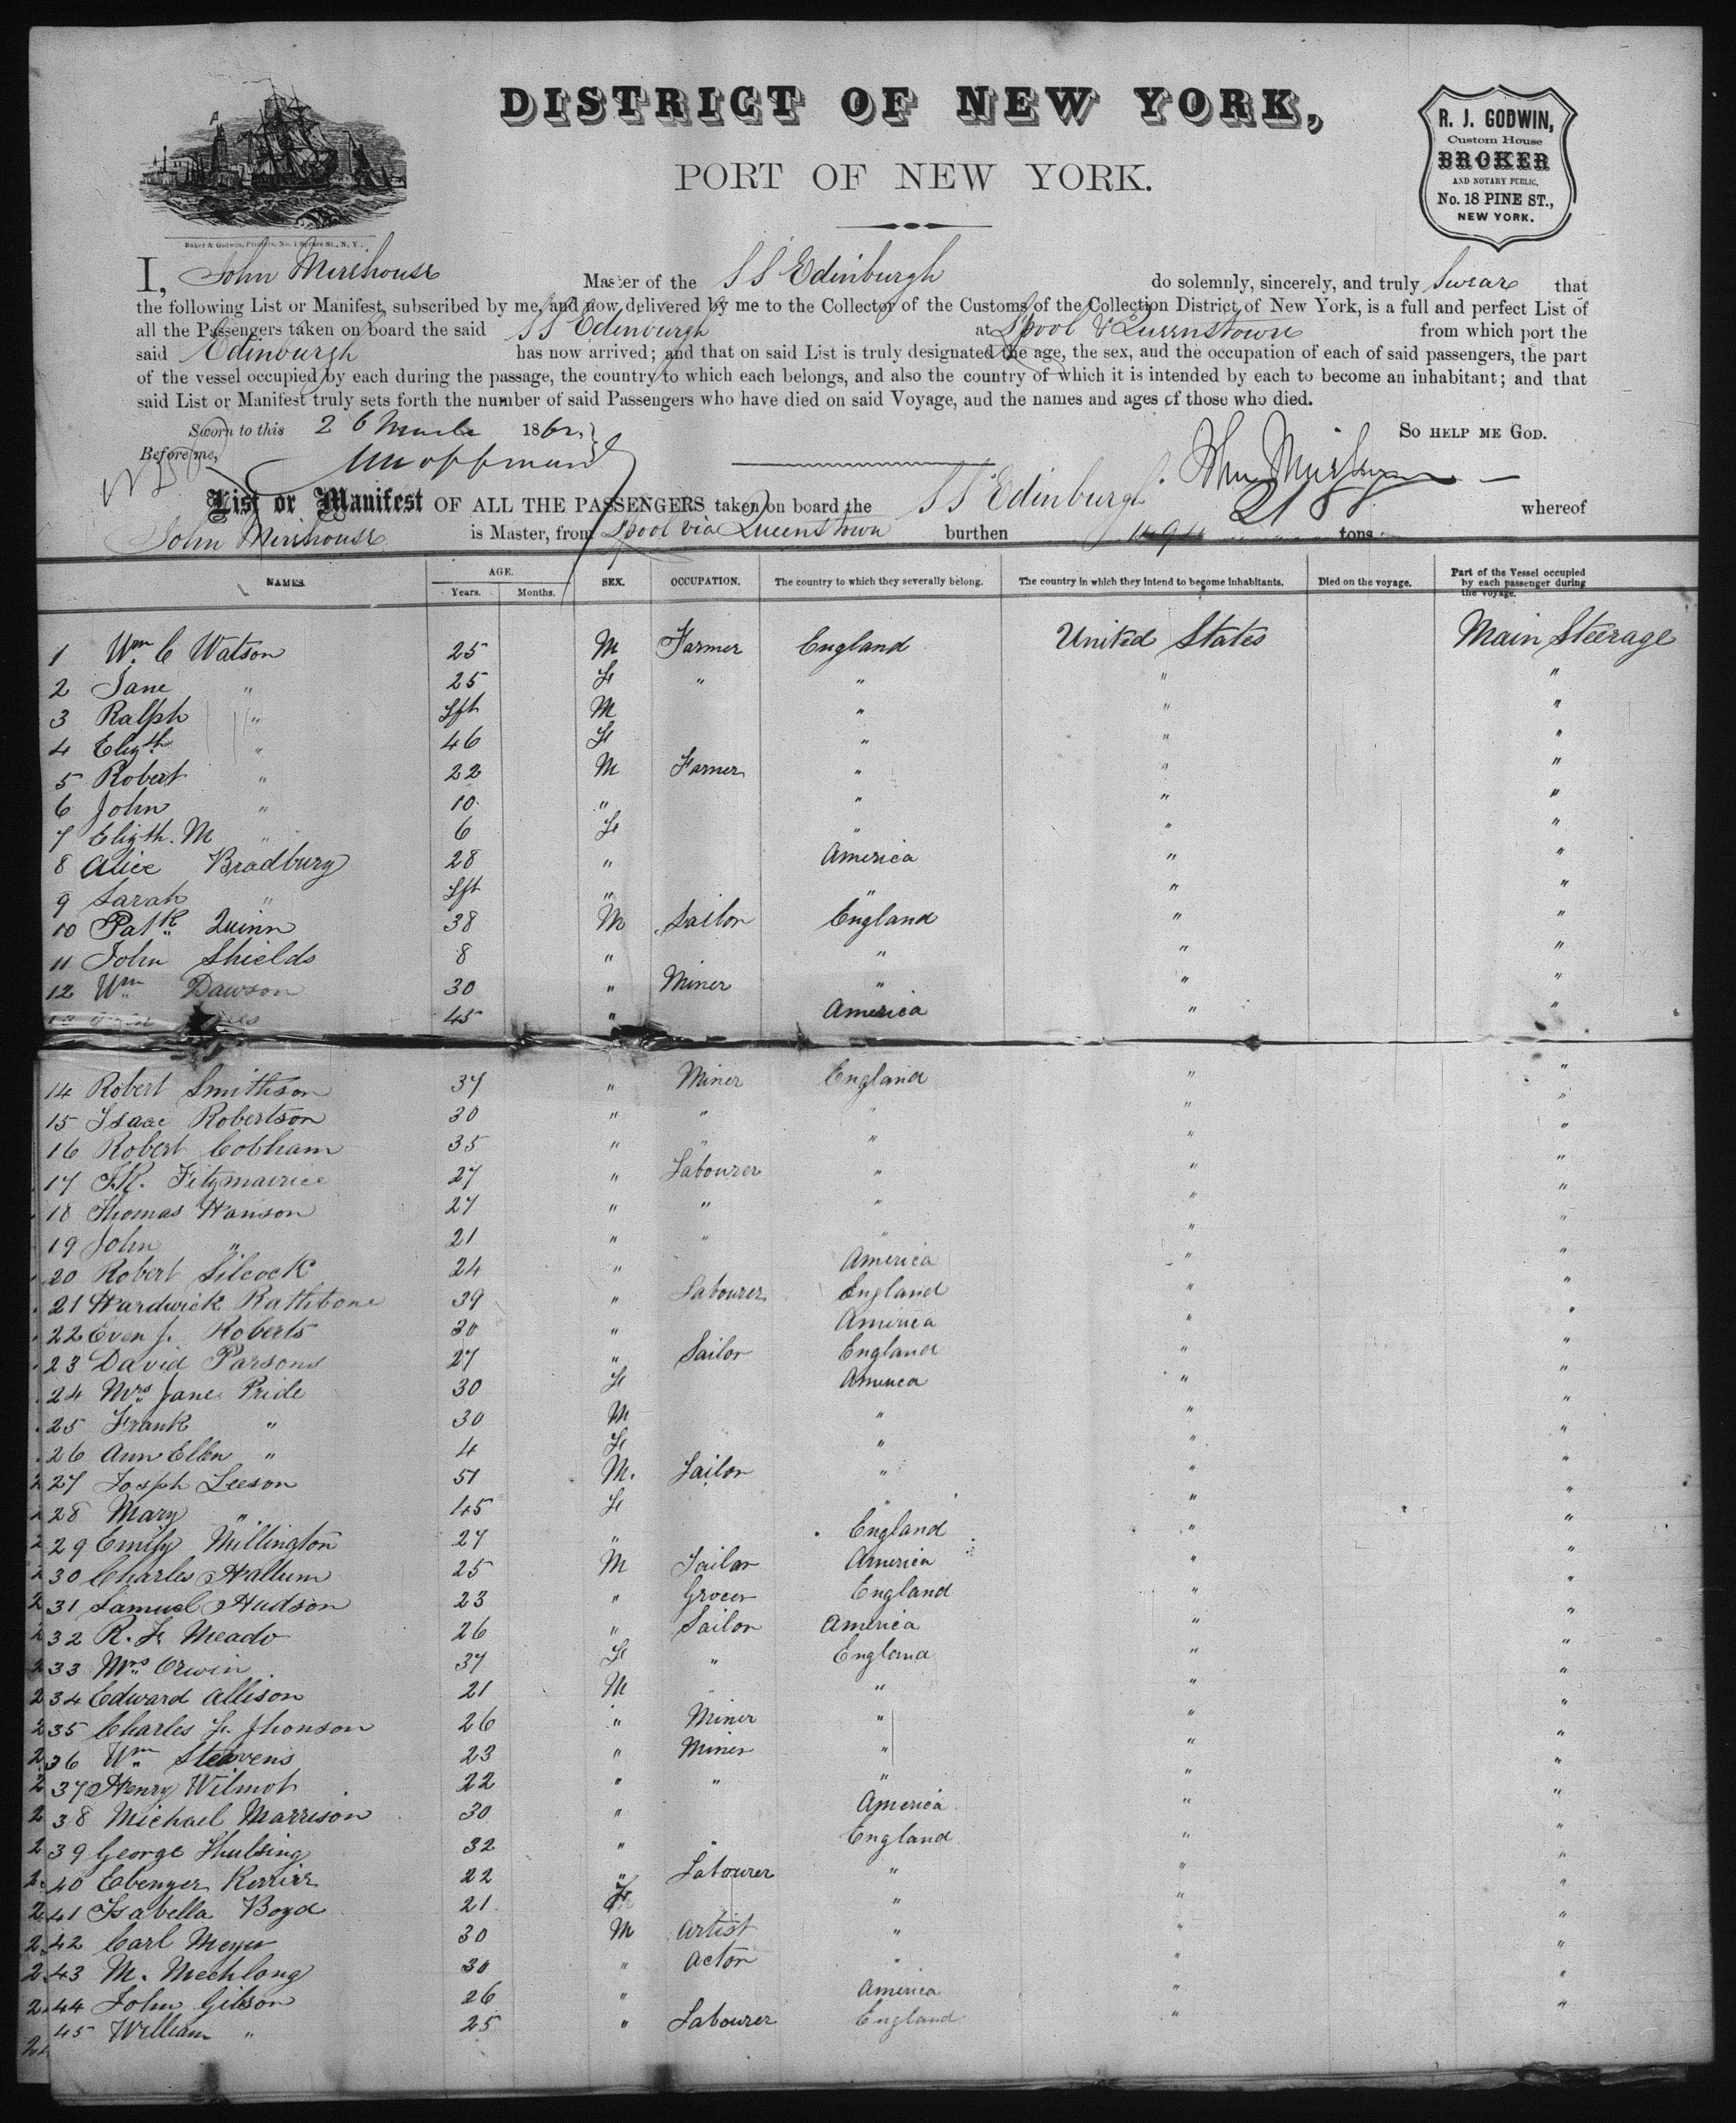 DISTRICT OF NEW YORK,
PORT OF NEW YORK.
R. J. GODWIN,
Custom House
BROKER
AND NOTARY PUBLIC,
No. 18 PINE ST.,
NEW YORK.
Baker & Godwin, Printers, No. 1 Spruce St., N. Y.
I, John Mirehouse Master of the S S Edinburgh do solemnly, sincerely, and truly Swear that
the following List or Manifest, subscribed by me, and now delivered by me to the Collector of the Customs of the Collection District of New York, is a full and perfect List of
all the Passengers taken on board the said S S Edinburgh at Lpool & Queenstown from which port the
said Edinburgh has now arrived; and that on said List is truly designated the age, the sex, and the occupation of each of said passengers, the part
of the vessel occupied by each during the passage, the country to which each belongs, and also the country of which it is intended by each to become an inhabitant; and that
said List or Manifest truly sets forth the number of said Passengers who have died on said Voyage, and the names and ages of those who died.
Sworn to this 26 March 1862, So HELP ME GOD.
Before me,
List or Manifest OF ALL THE PASSENGERS taken on board the S S Edinburgh whereof
John Mirehouse is Master, from Lpool via Queenstown burthen tons
NAMES. AGE. SEX. OCCUPATION. The country to which they severally belong. The country in which they intend to become inhabitants. Died on the voyage. Part of the Vessel occupied by each passenger during the voyage.
Years. Months.
1 Wm C Watson 25 M Farmer England United States Main Steerage
2 Jane " 25 F " " " "
3 Ralph " Inft M " " "
4 Elizth " 46 F " " "
5 Robert " 22 M Farmer " " "
6 John " 10 " " " "
7 Elizth. M " 6 F " " "
8 Alice Bradbury 28 " America " "
9 Sarah " Inft " " " "
10 Patk Quinn 38 M Sailor England " "
11 John Shields 8 " " " "
12 Wm Dawson 30 " Miner " " "
45 " America " "
14 Robert Smithson 37 " Miner England " "
15 Isaac Robertson 30 " " " " "
16 Robert Cobham 35 " " " " "
17 J.K. Fitzmaurice 27 " Labourer " " "
18 Thomas Hanson 27 " " " " "
19 John " 21 " " " " "
20 Robert Silcock 24 " America " "
21 Hardwick Rathbone 39 " Labourer England " "
22 Even J. Roberts 30 " America " "
23 David Parsons 27 " Sailor England " "
24 Mrs Jane Pride 30 F America " "
25 Frank " 30 M " " "
26 Ann Ellen " 4 F " " "
27 Josph Leeson 51 M. Tailor " " "
28 Mary " 45 F " " "
29 Emily Millington 27 " England " "
30 Charles Hallum 25 M Tailor America " "
31 Samuel Hudson 23 " Grocer England " "
32 R. F. Meado 26 " Sailor America " "
33 Mrs Orwin 37 F " England " "
34 Edward Allison 21 M " " "
35 Charles F. Jhonson 26 " Miner " " "
36 Wm Steavens 23 " Miner " " "
37 Henry Wilmot 22 " " " " "
38 Michael Marrison 30 " America " "
39 George Hulsing 32 " " England " "
40 Ebenzer 22 " Labourer " " "
41 Isabella Boyd 21 F " " "
42 Carl Meyer 30 M Artist " " "
43 M. Mechlong 30 " Actor " " "
44 John Gibson 26 " America " "
45 William " 25 " Labourer England " "